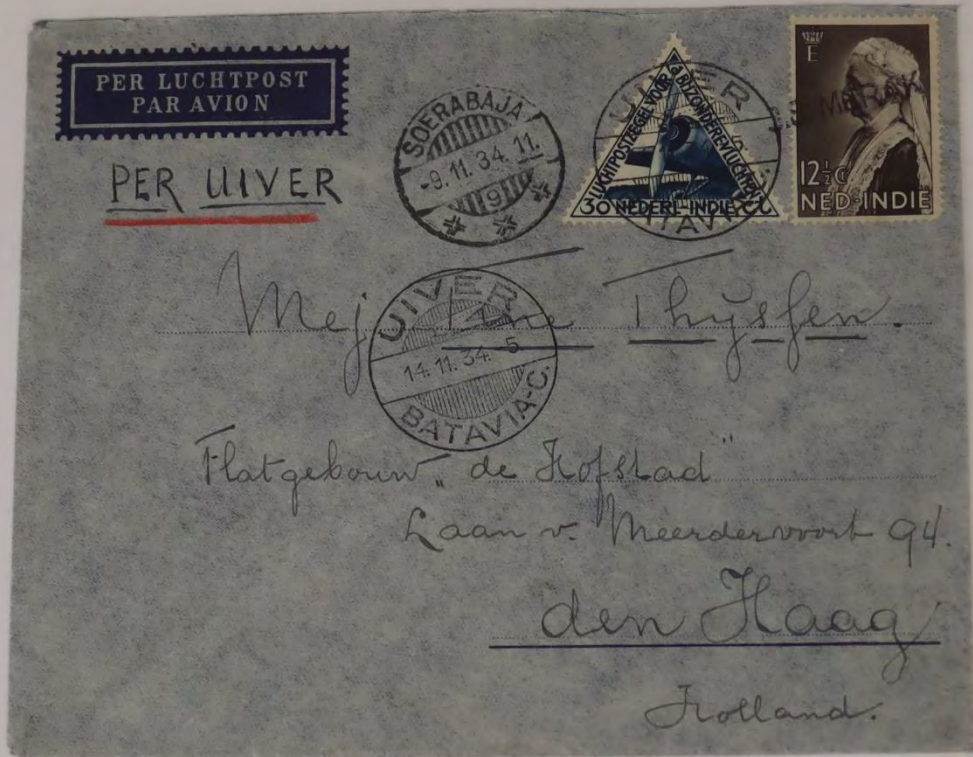 PER LUCHTPOST
PAR AVION
PER UIVER
SOERABAJA
-9.11.34.11.
9
UIVER
LUCHTPOSTZEGEL VOOR BIJZONDERE VLUCHTEN
30 NEDERL-INDIE CT
E
12½ CT
NED-INDIE
Mej Thyssen.
UIVER
14.11.34. 5
BATAVIA-C.
Flatgebouw „de Hofstad"
Laan v. Meerdervoort 94.
den Haag
Holland.